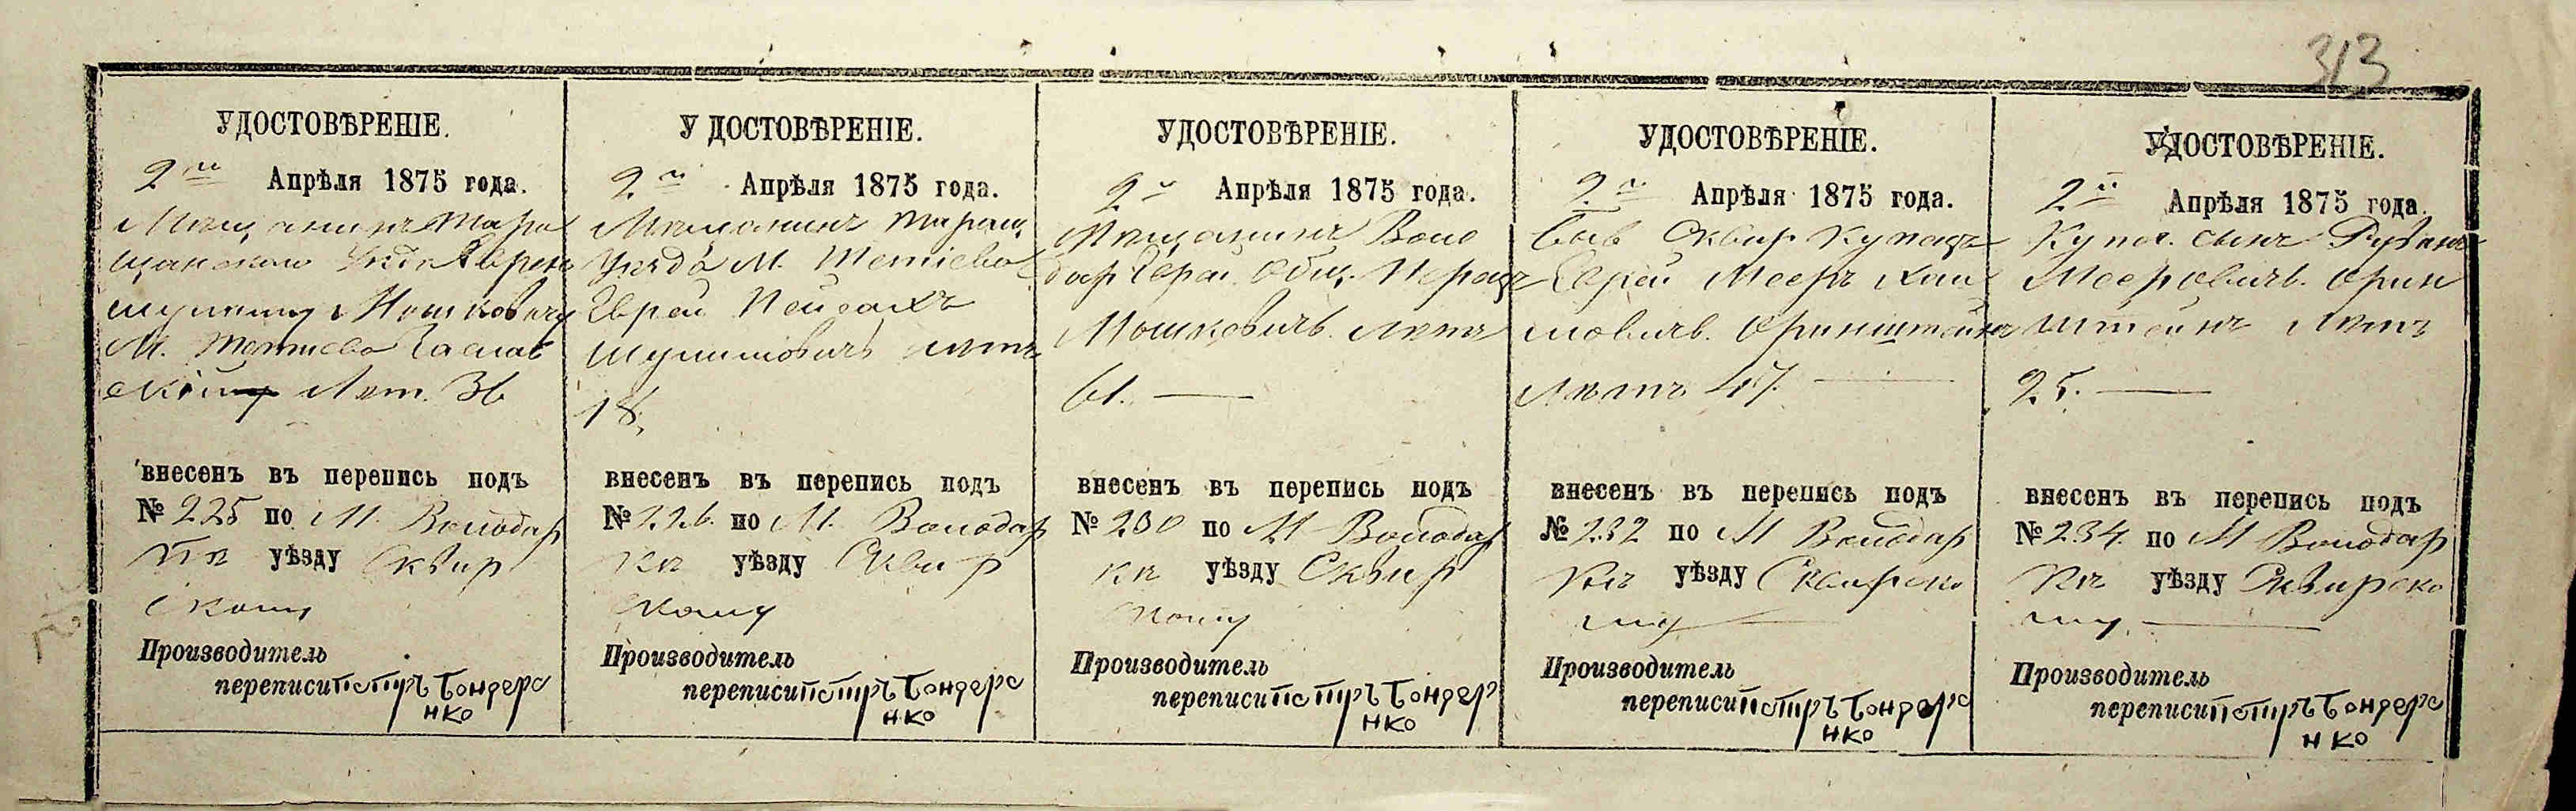 313
УДОСТОВѢРЕНІЕ.
2го Апрѣля 1875 года.
Мѣщанинъ Тара
щанскаго Уѣзда Еврей
Шулиму Мошковичу
М. Тетіева Заслав
скій Лѣт. 36
внесенъ въ перепись подъ
№ 225 по М. Володар
кѣ уѣзду Сквир
скому
Производитель
переписи Петръ Бондаре
нко
У ДОСТОВѢРЕНІЕ.
2го Апрѣля 1875 года.
Мѣщанинъ Таращ.
Уѣзда М. Тетіева
Еврей Пейсахъ
Шулимовичъ лѣтъ
18.
внесенъ въ перепись подъ
№ 226. по М. Володар
кѣ уѣзду Сквир
скому
Производитель
переписи Петръ Бондаре
нко
УДОСТОВѢРЕНІЕ.
2го Апрѣля 1875 года.
Мѣщанинъ Воло
дар Еврей. Общ.
Мошковичъ. Лѣтъ
61.
внесенъ въ перепись подъ
№ 230 по М Володар
кѣ уѣзду Сквир
скому
Производитель
переписи Петръ Бондар
нко
УДОСТОВѢРЕНІЕ.
2го Апрѣля 1875 года.
Быв Сквир Купецъ
Еврей Мееръ Хаи
мовичъ. Оринштейнъ
Лѣтъ 47.
внесенъ въ перепись подъ
№ 232 по М Володар
кѣ уѣзду Сквирско
му
Производитель
переписи Петръ Бондаре
нко
УДОСТОВѢРЕНІЕ.
2го Апрѣля 1875 года.
Купеч. сынъ Рувинъ
Мееровичъ. Орин
штейнъ Лѣтъ
25.
внесенъ въ перепись подъ
№ 234. по М Володар
кѣ уѣзду Сквирско
му.
Производитель
переписи Петръ Бондаре
нко